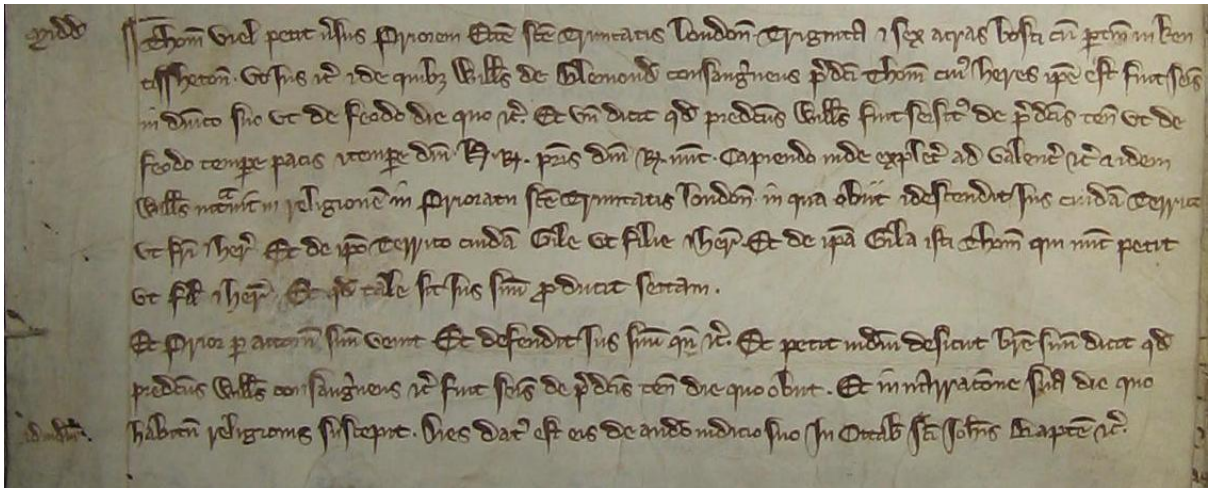 Midd Thom Viel petit vsus Priorem Ecce sce Trinitatis London Triginta & sex acras bosci cu ptin in Ken
tissheton. Ut Jus &c & de quibz Wills de Blemond consangineus pdci Thom cui heres ipe est fuit seis
in dnico suo ut de feodo die quo &c. Et un dicit qd predcus Wills fuit seisit de pdcis ten ut de
feodo tempe pacis & tempe dni H. R. pris dni R. nunc. Capiendo inde explet ad valenc &c & idem
Wills intavit in religione in Prioratu sce Trinitatis London in qua obiit & descendit Jus cuida Terrico
ut fri & her. Et de ipo Terrico cuida Gile ut filie & her. Et de ipa Gila isti Thom qui nunc petit
ut fil & her. Et qd tale sit Jus suu producit sectam.
Et Prior p attorn suu venit Et defendit Jus suu qn &c. Et petit judm desicut bre suu dicit qd
predcus Wills consangineus &c fuit seis de pdcis ten die quo obiit. Et in narratone sua die quo
habitu religionis suscepit. Dies dat est eis de audiendo judicio suo In Octab sci Johis Bapte &c.